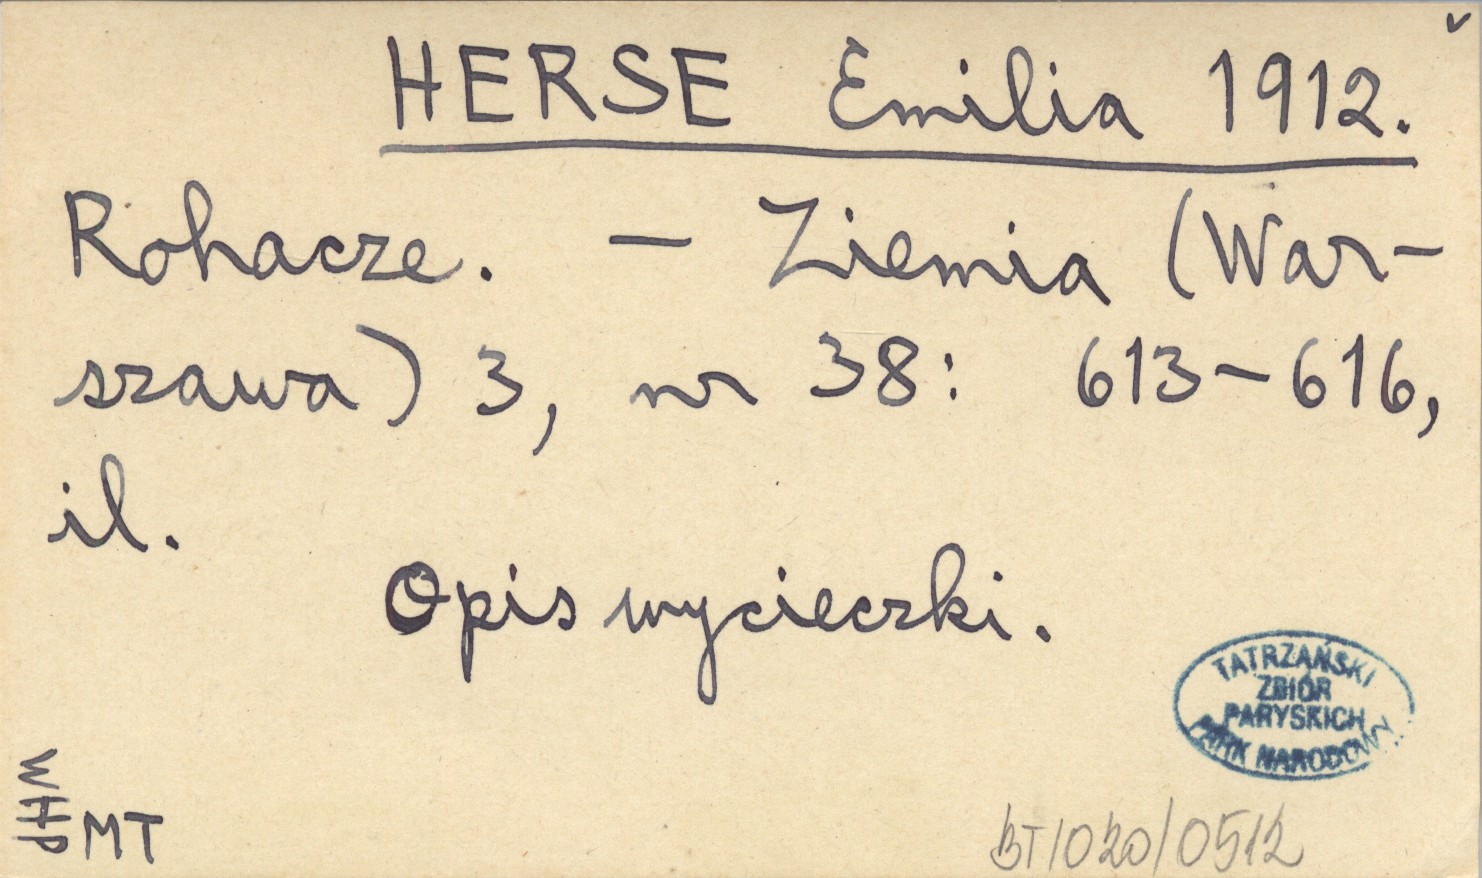 v
HERSE Emilia 1912.
Rohacze. — Ziemia (War-
szawa) 3, nr 38: 613-616,
il.
Opis wycieczki.
TATRZAŃSKI
ZBIÓR
PARYSKICH
PARK NARODOWY
WHP
MT
BT/020/0512